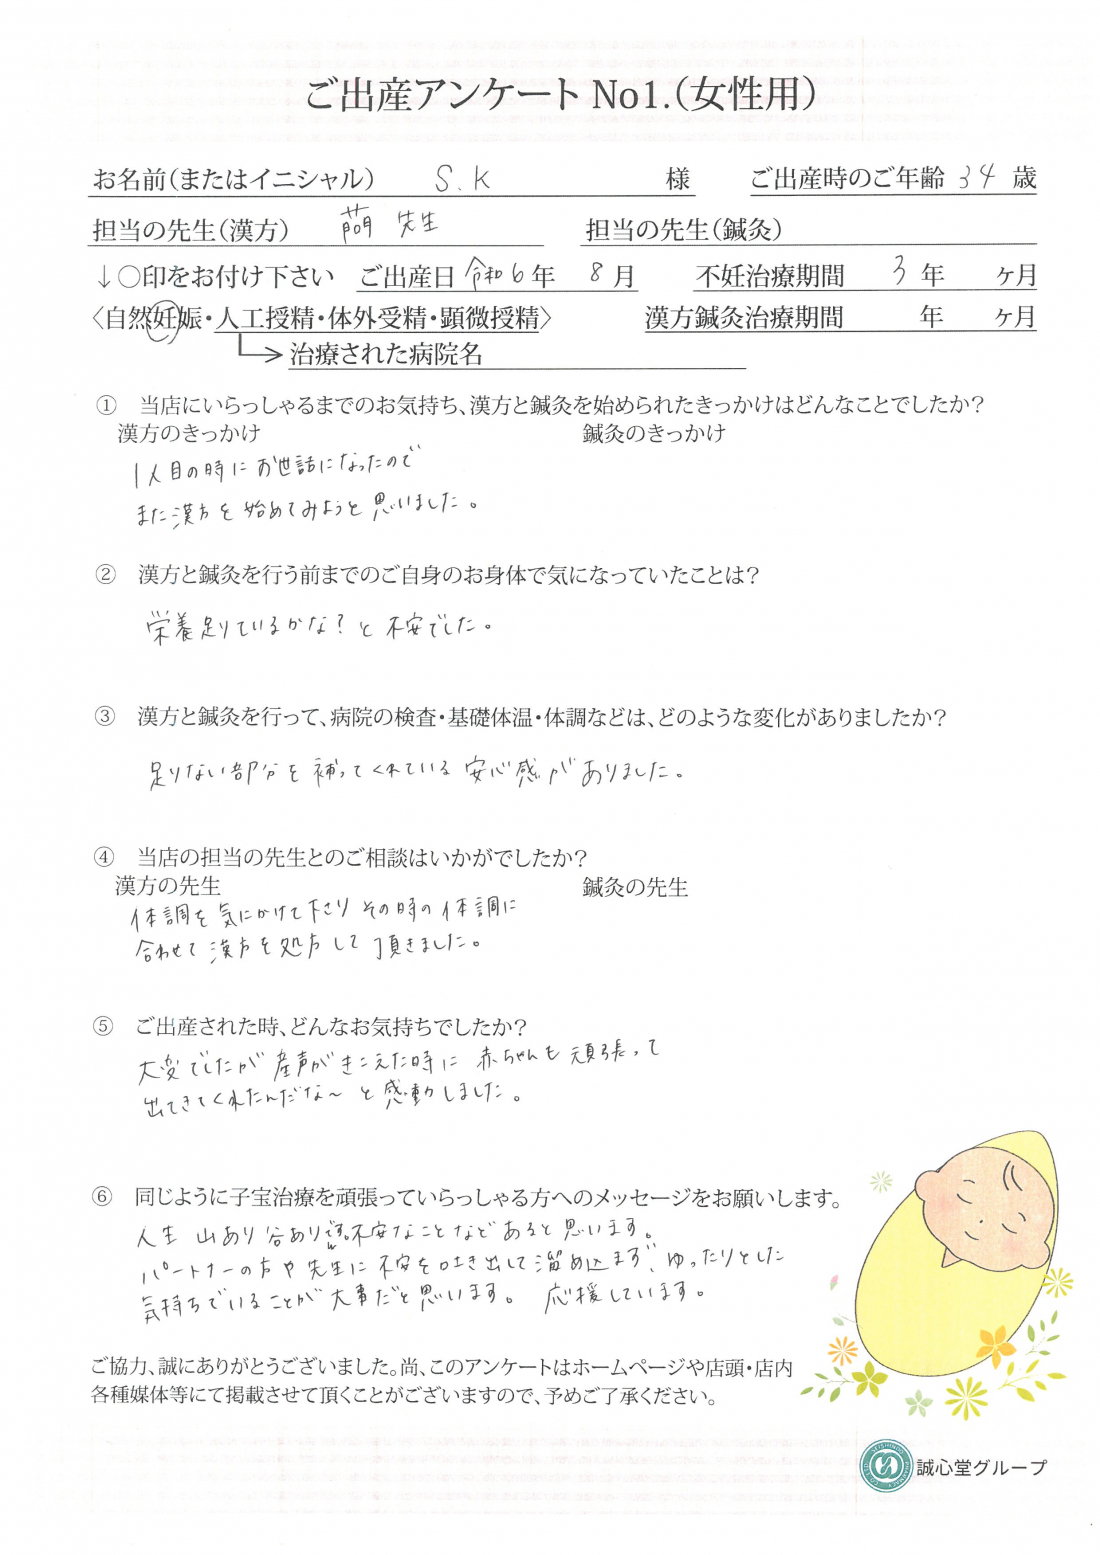 ご出産アンケート No1.(女性用)
お名前(またはイニシャル) S.K 様 ご出産時のご年齢 34 歳
担当の先生(漢方) 萌 先生 担当の先生(鍼灸)
↓○印をお付け下さい ご出産日 令和6年 8月 不妊治療期間 3年 ヶ月
〈自然妊娠・人工授精・体外受精・顕微授精〉 漢方鍼灸治療期間 年 ヶ月
治療された病院名
① 当店にいらっしゃるまでのお気持ち、漢方と鍼灸を始められたきっかけはどんなことでしたか?
漢方のきっかけ 鍼灸のきっかけ
1人目の時にお世話になったので
また漢方を始めてみようと思いました。
② 漢方と鍼灸を行う前までのご自身のお身体で気になっていたことは?
栄養足りているかな?と不安でした。
③ 漢方と鍼灸を行って、病院の検査・基礎体温・体調などは、どのような変化がありましたか?
足りない部分を補ってくれている安心感がありました。
④ 当店の担当の先生とのご相談はいかがでしたか?
漢方の先生 鍼灸の先生
体調を気にかけて下さりその時の体調に
合わせて漢方を処方して頂きました。
⑤ ご出産された時、どんなお気持ちでしたか?
大変でしたが産声がきこえた時に赤ちゃんも頑張って
出てきてくれたんだな〜と感動しました。
⑥ 同じように子宝治療を頑張っていらっしゃる方へのメッセージをお願いします。
人生 山あり谷ありです。不安なことなどあると思います。
パートナーの方や先生に不安を吐き出して溜め込まず、ゆったりとした
気持ちでいることが大事だと思います。 応援しています。
ご協力、誠にありがとうございました。尚、このアンケートはホームページや店頭・店内
各種媒体等にて掲載させて頂くことがございますので、予めご了承ください。
誠心堂グループ